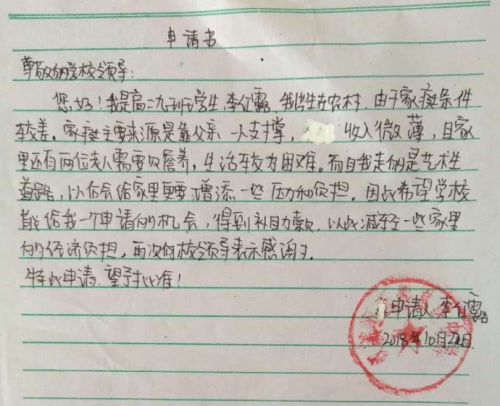 申请书
尊敬的学校领导:
您好!我是高二九班学生李仁露,我出生在农村,由于家庭条件
较差。家庭主要来源是靠父亲一人支撑,收入微薄,且家
里还有两位老人需要赡养,生活较为困难。而自我走的是艺术生
道路,以后会给家里更要增添一些压力和负担。因此希望学校
能给我一个申请的机会,得到补助款,以此减轻一些家里
的经济负担,再次向校领导表示感谢了。
特此申请,望予批准!
申请人 李仁露
2018年10月22日